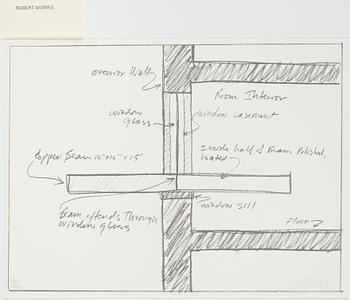 ROBERT MORRIS
Exterior Wall
Room Interior
window
glass
window casement
Inside half of Beam Polished,
heated
Copper Beam 16"x16"x15'
Beam extends Through
window glass
window sill
Floor